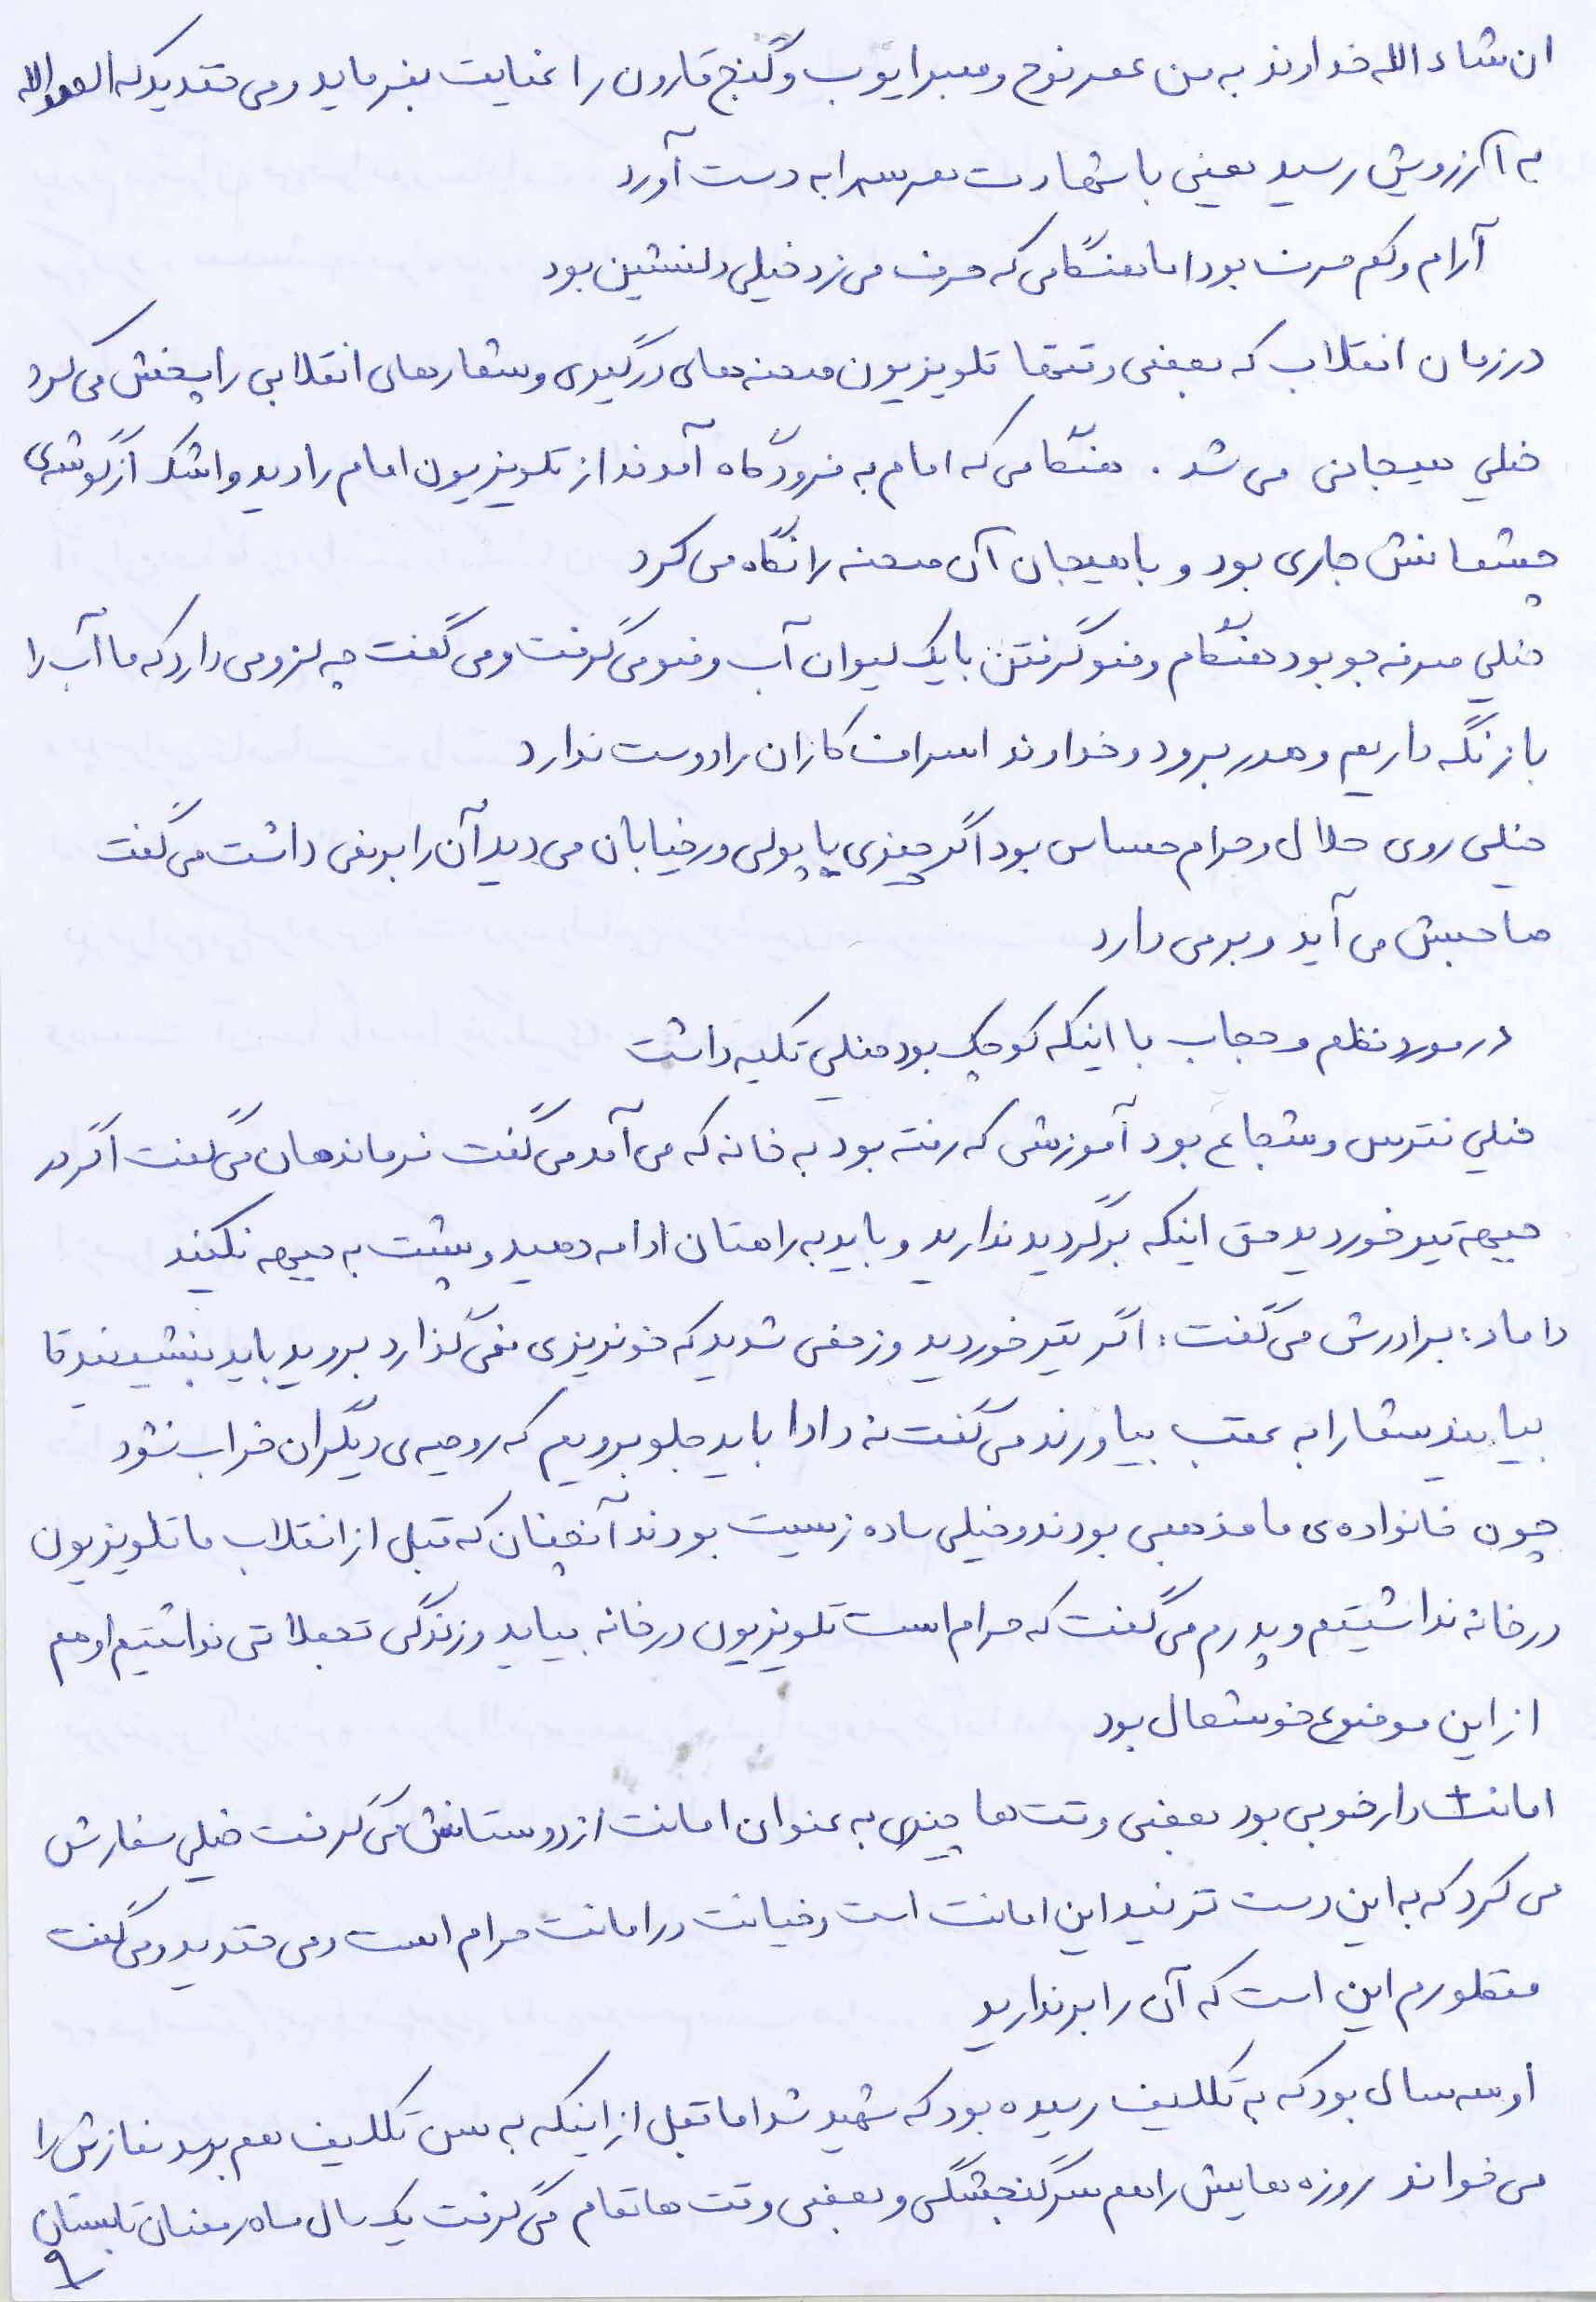 ان شاء الله خداوند به من عمر نوح و صبر ایوب و گنج قارون را عنایت بفرماید و می خندید که الحمدالله
به آرزویش رسید یعنی با شهادت هر سه را به دست آورد
آرام و کم حرف بود اما هنگامی که حرف می زد خیلی دلنشین بود
در زمان انقلاب که بعضی وقتها تلویزیون صحنه های درگیری و شعارهای انقلابی را پخش می کرد
خیلی هیجانی می شد . هنگامی که امام به فرودگاه آمدند از تلویزیون امام را دید و اشک از گوشه ی
چشمانش جاری بود و با هیجان آن صحنه را نگاه می کرد
خیلی صرفه جو بود هنگام وضو گرفتن با یک لیوان آب وضو می گرفت و می گفت چه لزومی دارد که ما آب را
باز نگه داریم و هدر برود و خداوند اسراف کاران را دوست ندارد
خیلی روی حلال و حرام حساس بود اگر چیزی یا پولی در خیابان می دید آن را برنمی داشت می گفت
صاحبش می آید و برمی دارد
در مورد نظم و حجاب با اینکه کوچک بود خیلی تکیه داشت
خیلی نترس و شجاع بود آموزشی که رفته بود به خانه که می آمد می گفت فرماندهان می گفت اگر در
جبهه تیر خوردید حق اینکه برگردید ندارید و باید به راهتان ادامه دهید و پشت به جبهه نکنید
داماد : برادرش می گفت : اگر تیر خوردید و زخمی شدید که خونریزی نمی گذارد بروید باید بنشینید تا
بیایند شما را به عقب بیاورند می گفت نه دادا باید جلو برویم که روحیه ی دیگران خراب نشود
چون خانواده ی ما مذهبی بودند و خیلی ساده زیست بودند آنچنان که قبل از انقلاب ما تلویزیون
در خانه نداشتیم و پدرم می گفت که حرام است تلویزیون در خانه بیاید و زندگی تجملاتی نداشتیم او هم
از این موضوع خوشحال بود
امانت دار خوبی بود بعضی وقت ها چیزی به عنوان امانت از دوستانش می گرفت خیلی سفارش
می کرد که به این دست نزنید این امانت است و خیانت در امانت حرام است و می خندید و می گفت
منظورم این است که آن را برندارید
او سه سال بود که به تکلیف رسیده بود که شهید شد اما قبل از اینکه به سن تکلیف هم برسد نمازش را
می خواند روزه هایش را هم سرگنجشگی و بعضی وقت ها تمام می گرفت یک سال ماه رمضان تابستان
۹